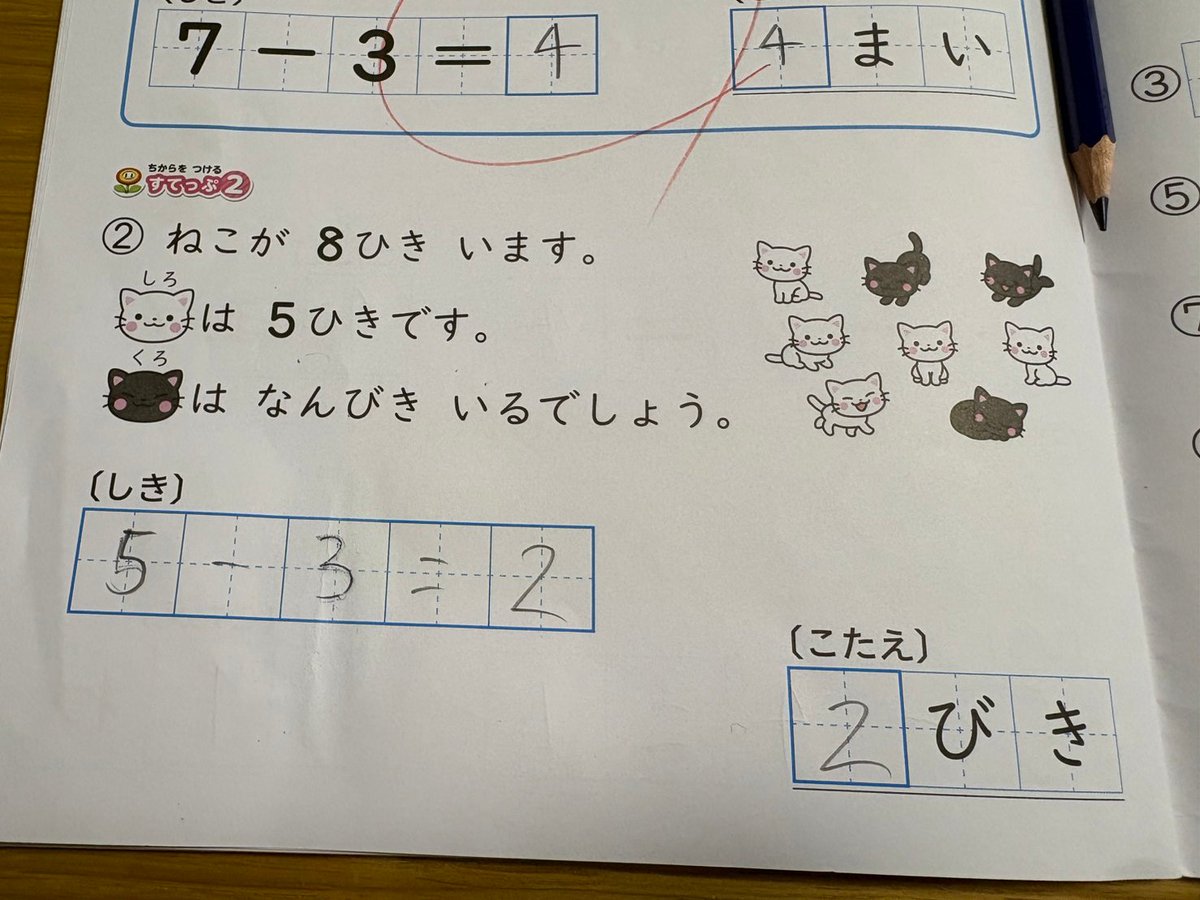 7-3=4
4まい
ちからを つける
すてっぷ2
② ねこが 8ひき います。
しろ
は 5ひきです。
くろ
は なんびき いるでしょう。
(しき)
5-3=2
(こたえ)
2びき
③
⑤